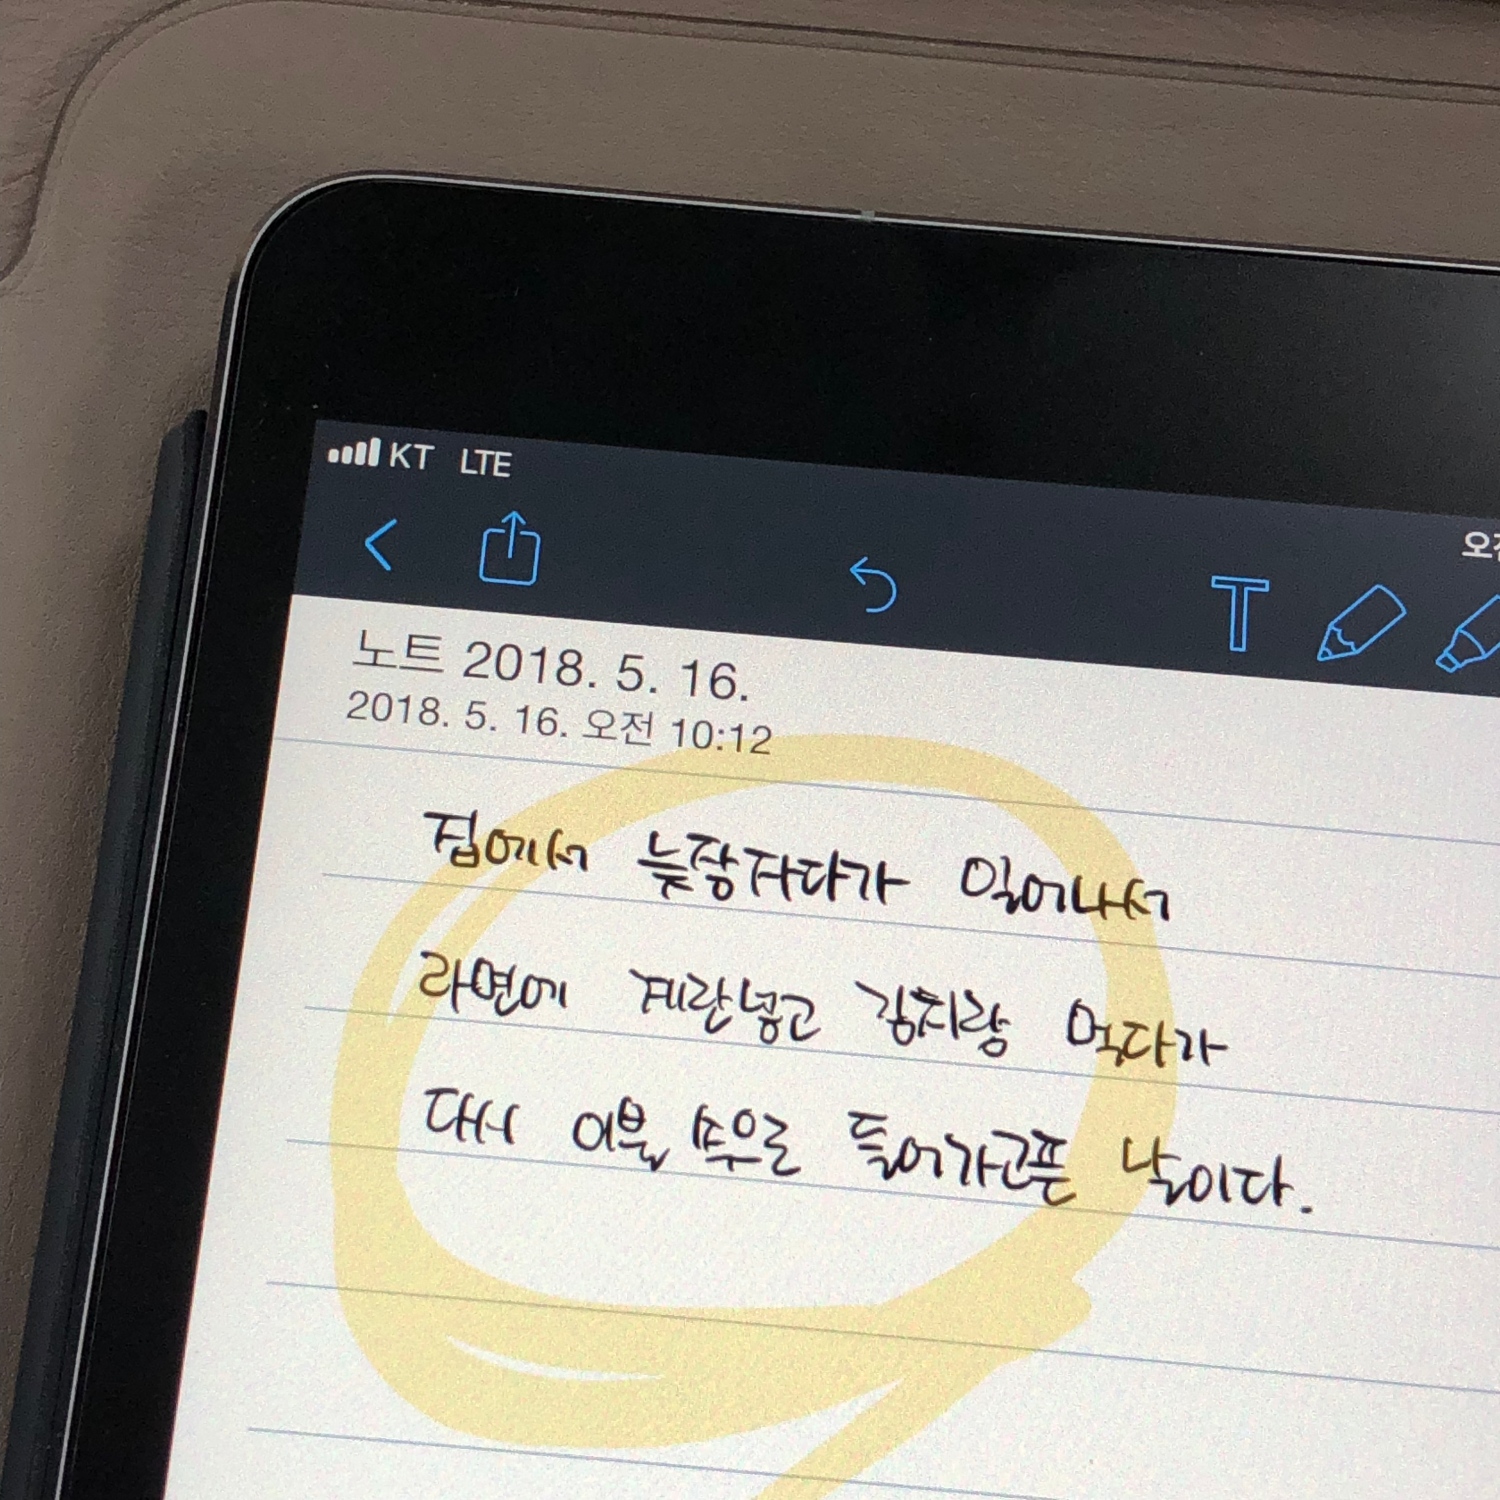 KT LTE
오전
T
노트 2018. 5. 16.
2018. 5. 16. 오전 10:12
집에서 늦잠자다가 일어나서
라면에 계란넣고 김치랑 먹다가
다시 이불 속으로 들어가고픈 날이다.